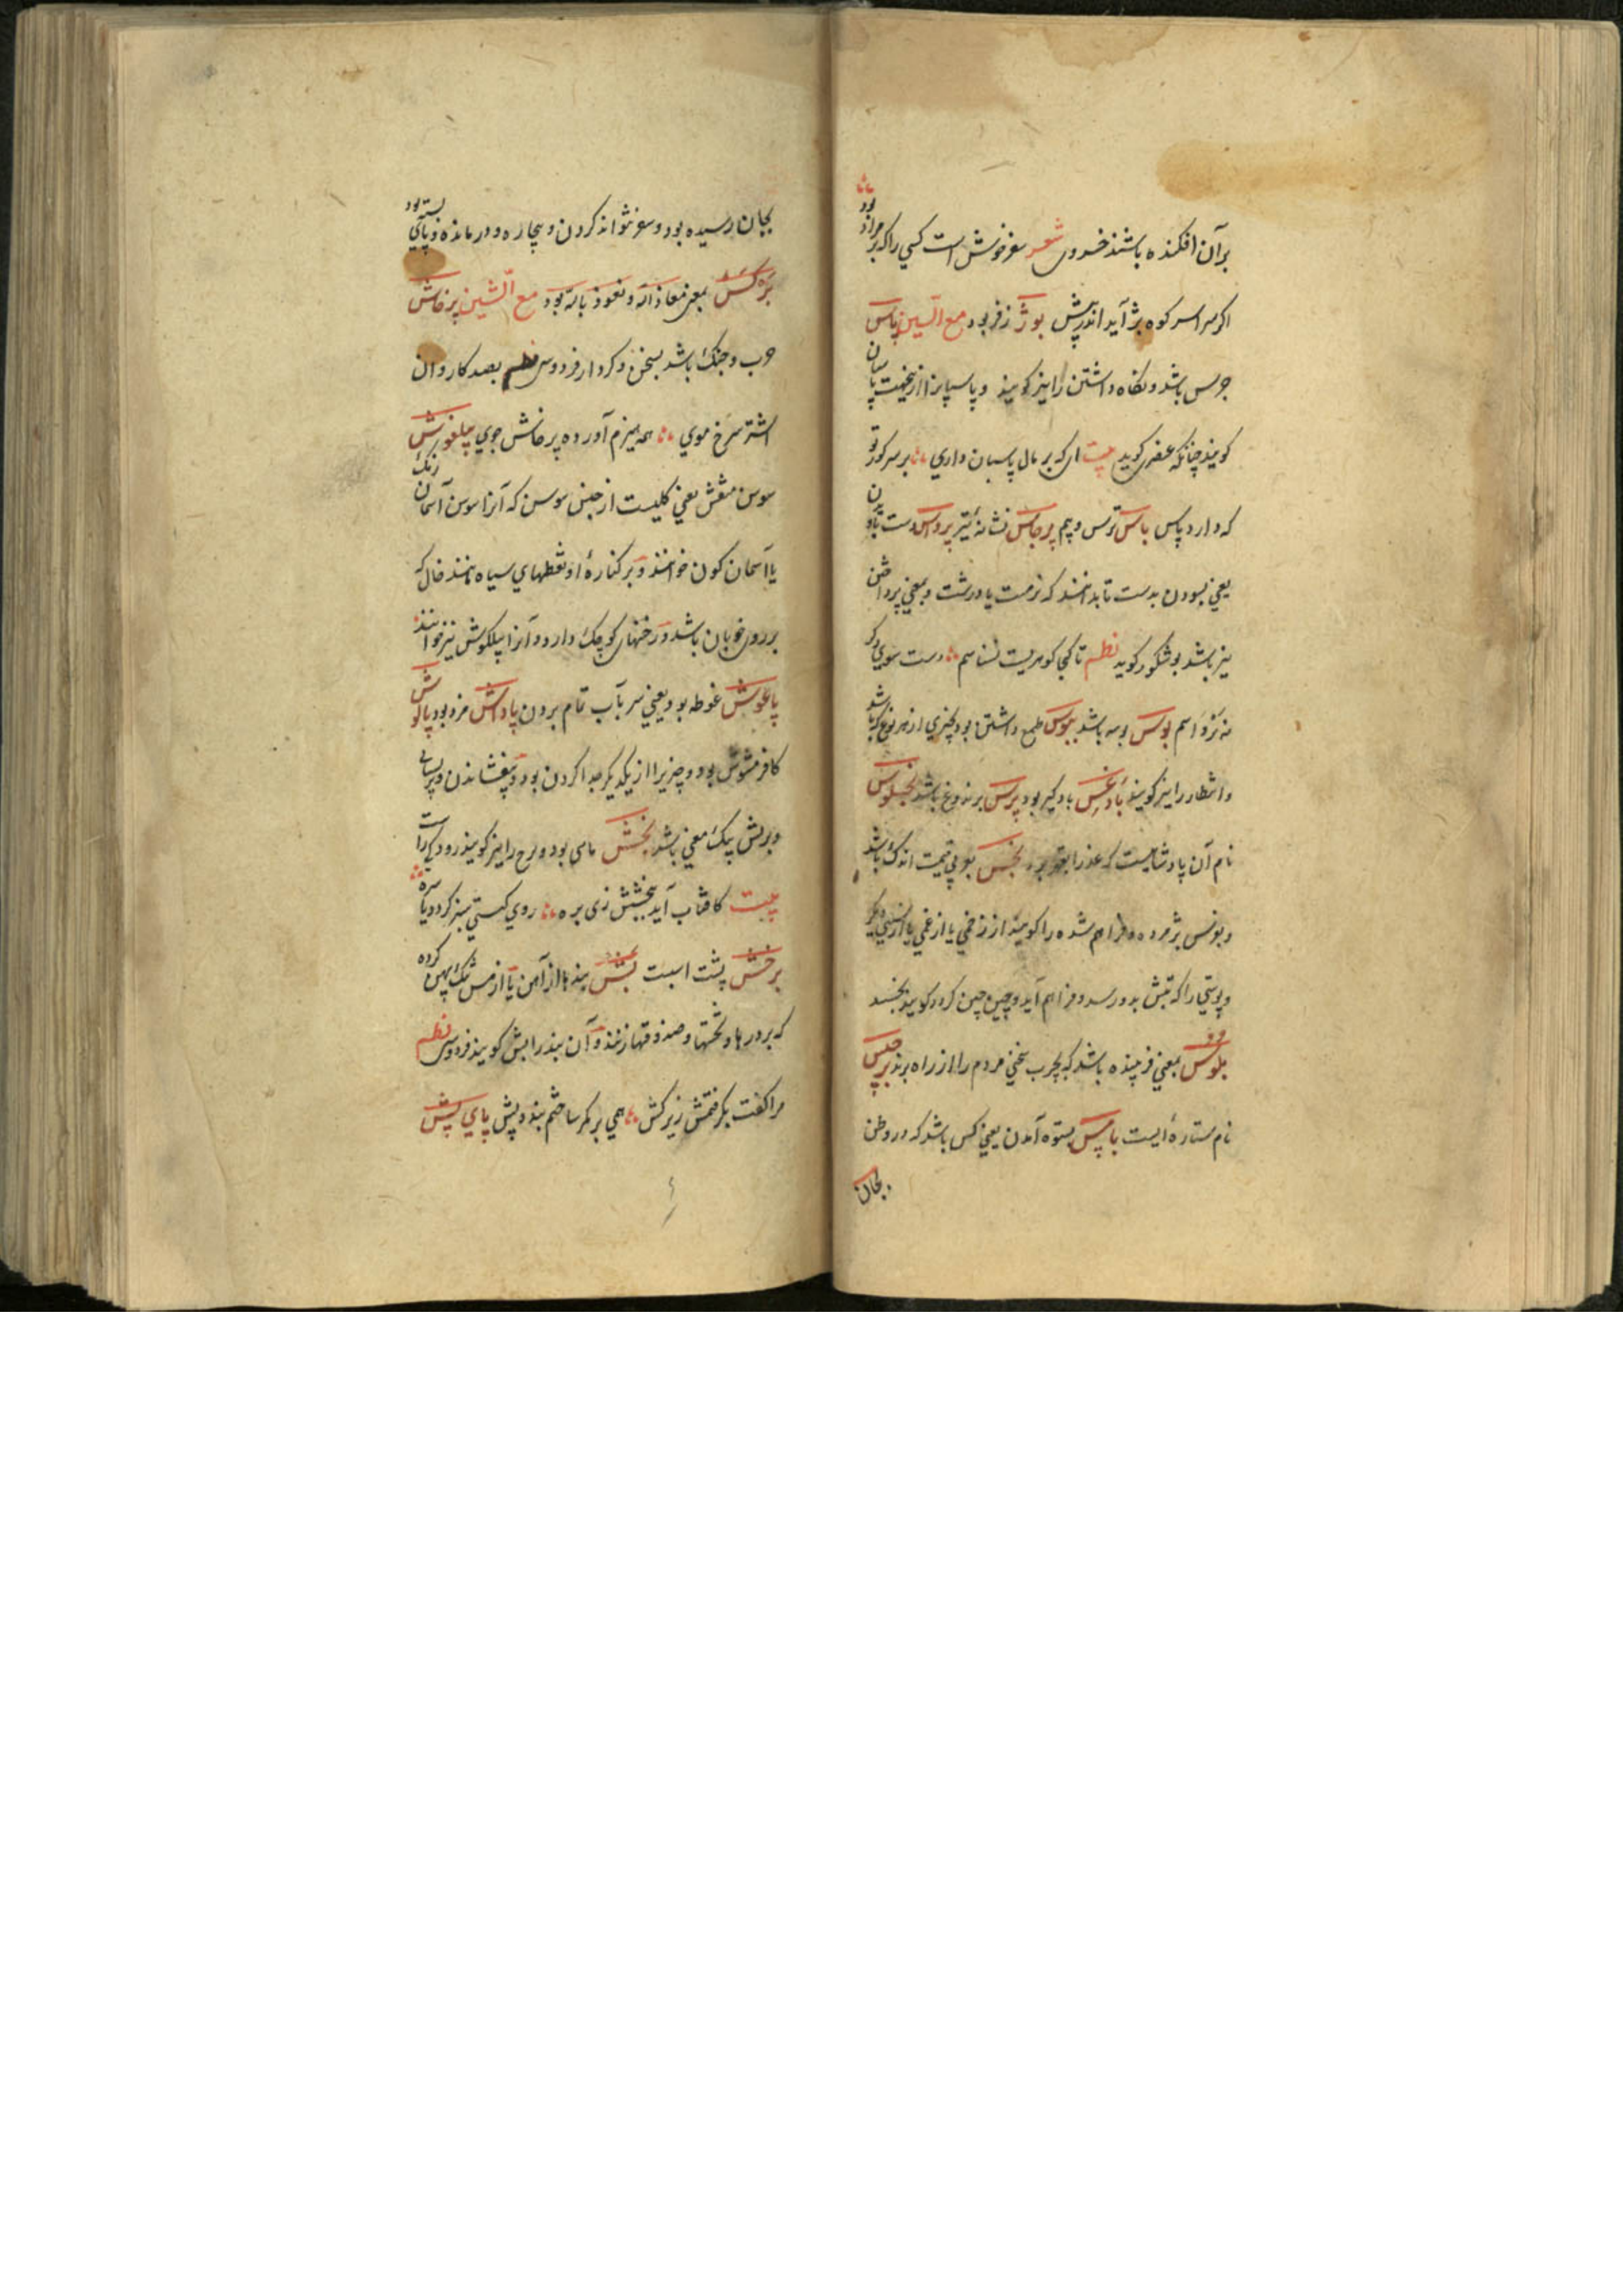 برآن افکنده باشند خسروی شعر سفر خوش است کسی را که بر مراد بود
اکر سراسر کوه و بژ آید اندر پیش بوژ زفر بود مع السین پاس
جرس باشد و نکاه داشتن را نیز کویند و پاسپانرا ازینجهت پاسبان
کویند چنانکه عنصری کوید بیت ای که بر مال پاسبان داری بر سر کور تو
که دارد پاس باس ترس و بیم برجاس نشانهٔ تیر پرواس دست
یعنی بسودن بدست تا بدانند که نرمست یا درشت و بمعنی پرداختن
نیز باشد بوشکور کوید نظم تا کجا کوهریست نشناسم دست سوی دکر
نه پرواسم بوس بوسه باشد ببوس طمع داشتن بود بچیزی از هر نوع که باشد
و انتظار را نیز کویند بادغس بادکیر بود برس برندوغ باشد بخسلوس
نام آن پادشاهیست که عذرا بقهر برد بخس بوبی قیمت اندک باشد
و بونس پژمرده و فراهم شده را کویند از زخمی یا از غمی یا از سببی دیکر
و پوستی را که تبش بدو رسد و فراهم آید و چین چین کردد کویند بخسد
بلوس بمعنی فریبنده باشد که بچرب سخنی مردم را از راه برند برجیس
نام ستاره‌ٔ ایست باپس بستوه آمدن یعنی کسی باشد که در وطن
بجان
بجان رسیده بود و سفر نتواند کردن و بیچاره و درمانده و پای بسته بود
برکس بمعنی معاذ الله و نعوذ بالله بود مع الشین پرخاش
حرب و جنک باشد بسخن و کردار فردوسی نظم بصد کاروان
اشتر سرخ موی همه هیزم آورده پرخاش جوی پیلغوش
سوسن منقش یعنی کلیست از جنس سوسن که آنرا سوسن آسمان رنک
یا آسمان کون خوانند و بر کنارهٔ او نقطهای سیاه مانند خال که
بر روی خوبان باشد و رخنهای کوچک دارد و آنرا پیلکوش نیز خوانند
پاغوش غوطه بود یعنی سر بآب تمام بردن پاداش مزد بود پالوش
کافر مشوش بود و چیزیرا از یکدیکر جدا کردن بود و بیفشاندن و پریشانی
و بریش یک معنی باشد بخش ماهی بود و برج را نیز کویند رودکی راست
بیت کافتاب آید ببخشش زی بره روی کیتی سبز کردد یکسره
برخش پشت اسبست بش بندها از آهن یا از مس تنک پهن کرده
که بر درها و تختها و صندوقها زنند و آن بند را بش کویند فردوسی نظم
مرا کفت بکرفتمش زیر کش همی بر کمر ساختم بند و پش پای پش